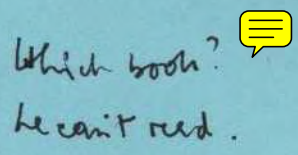 Which book?
He can't read.